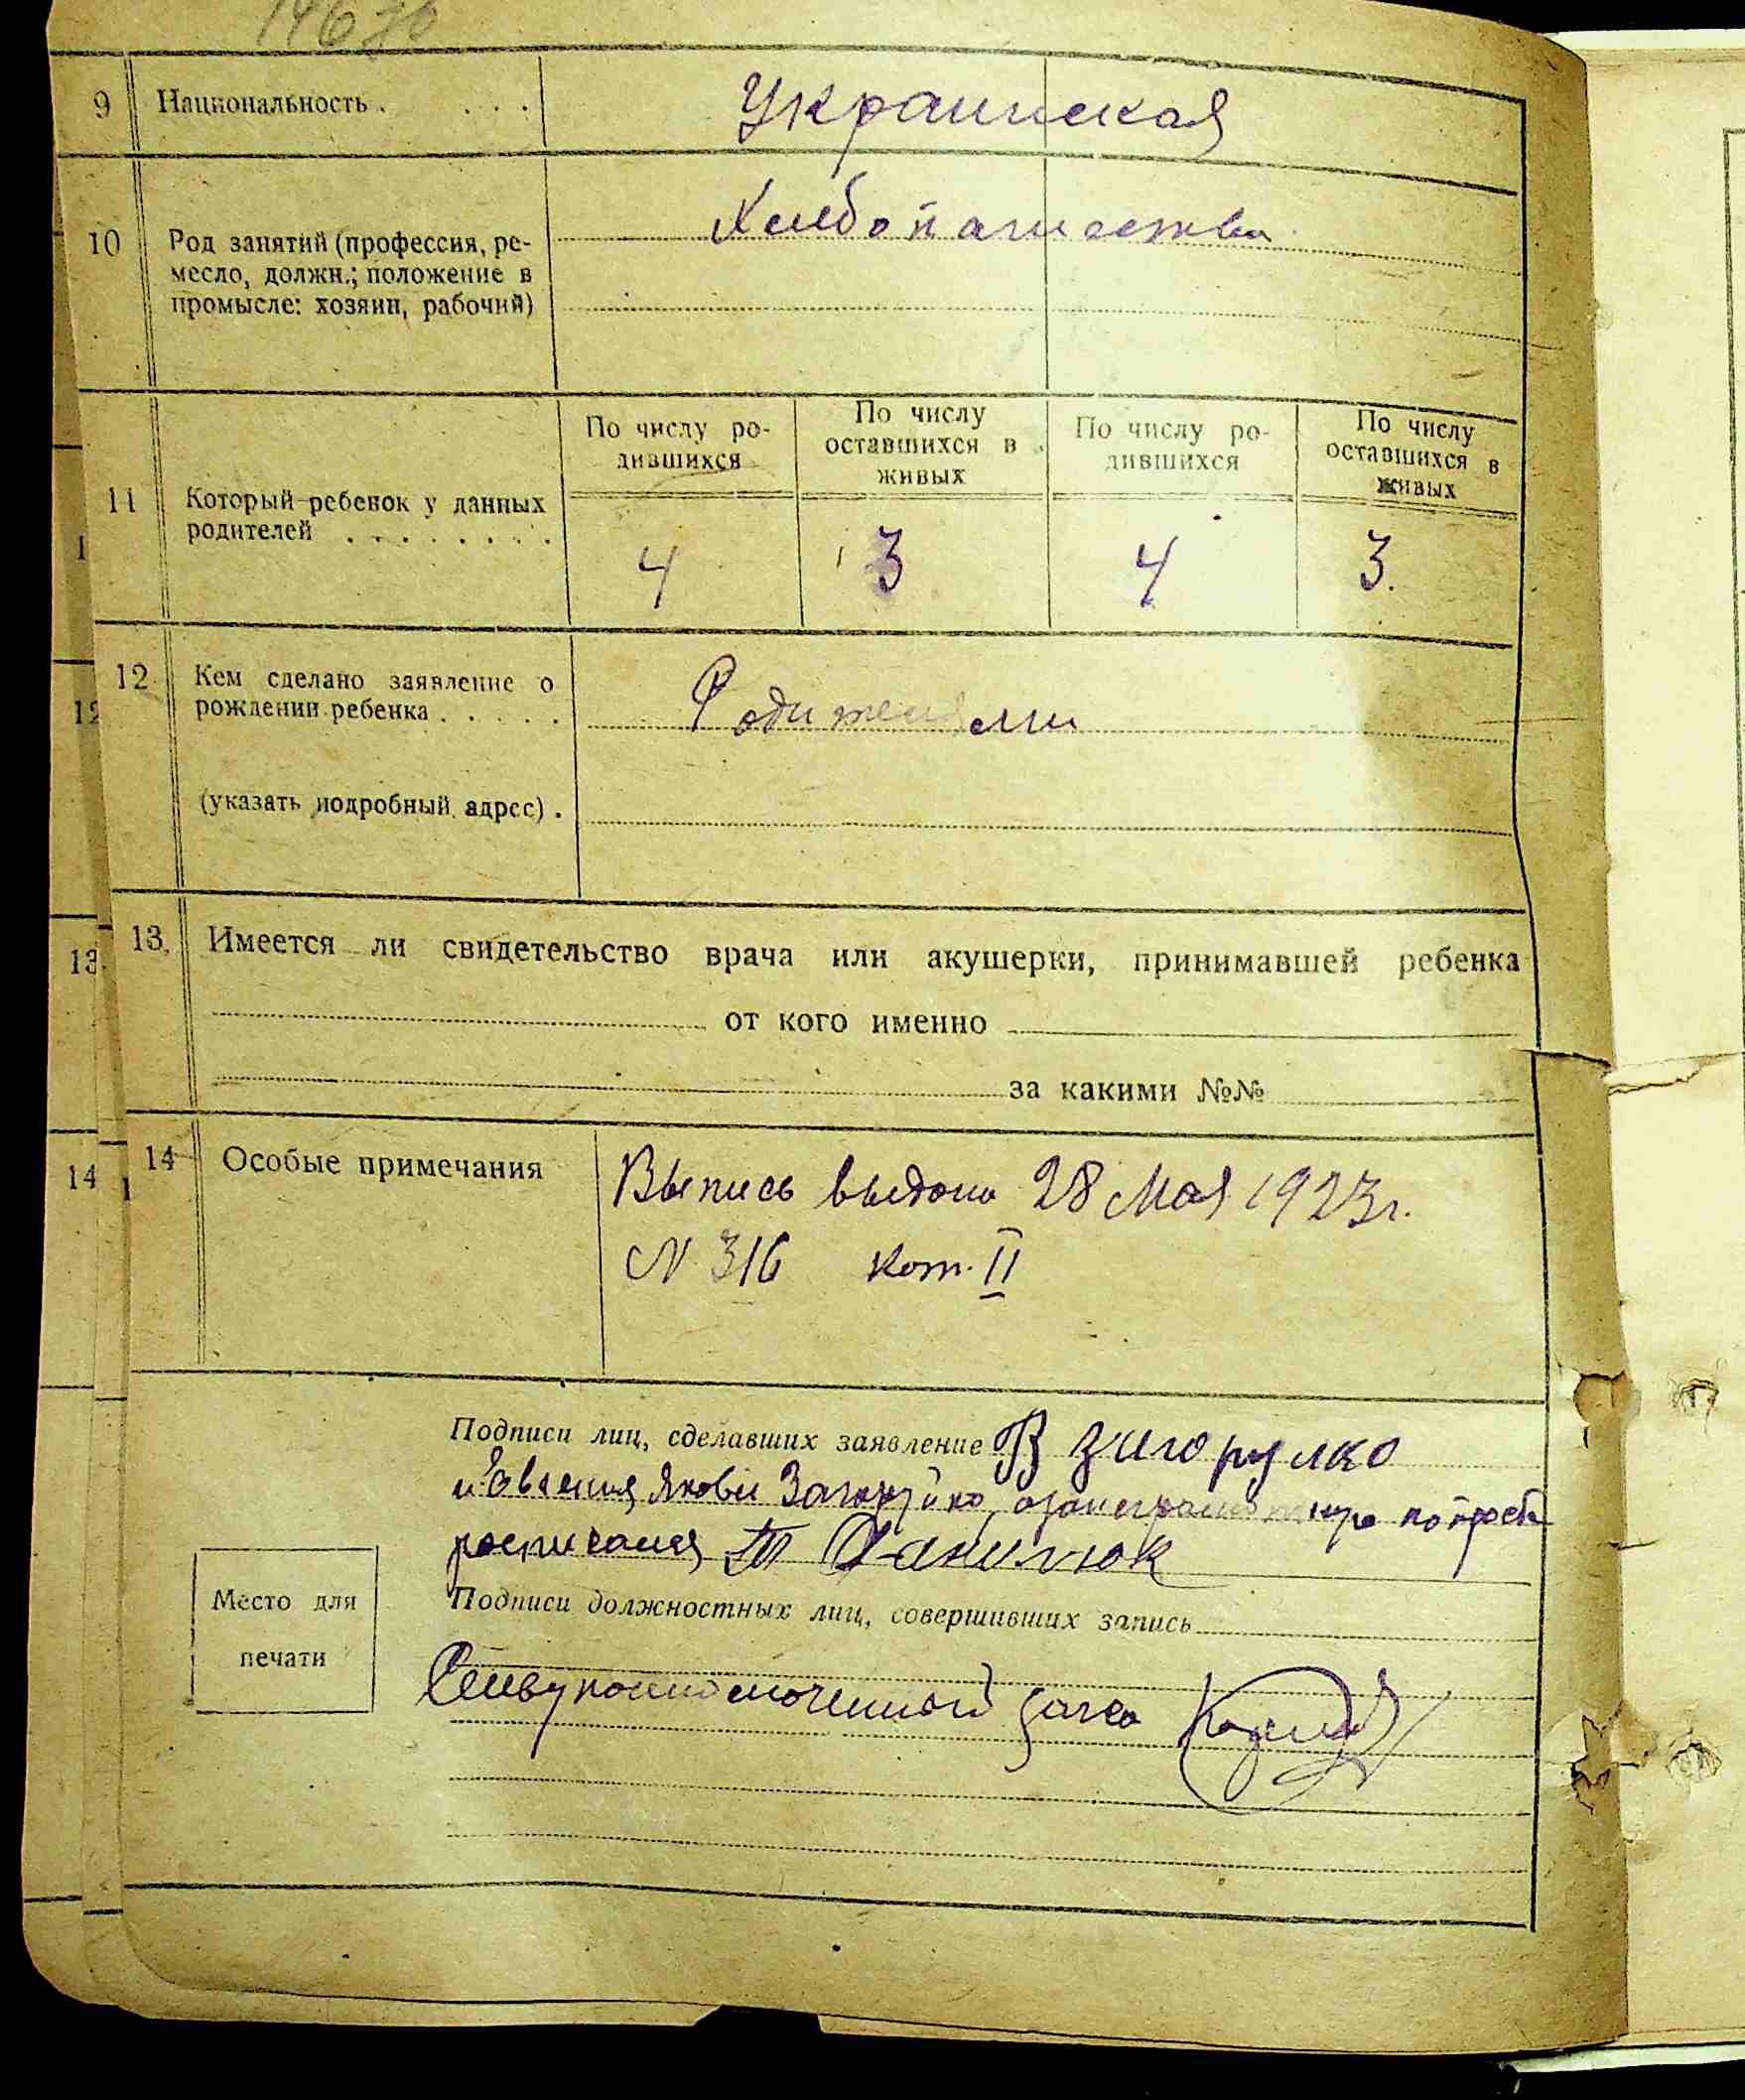 9 Национальность . . . . Украинская
10 Род занятий (профессия, ре-
месло, должн.; положение в
промысле: хозяин, рабочий)
Хлебопашество
11 Который ребенок у данных
родителей . . . . . . . .
По числу ро-
дившихся
По числу
оставшихся в
живых
По числу ро-
дившихся
По числу
оставшихся в
живых
4 3 4 3.
12 Кем сделано заявление о
рождении ребенка . . . . .
Родителями
(указать подробный адрес) .
13. Имеется ли свидетельство врача или акушерки, принимавшей ребенка
от кого именно
за какими №№
14 Особые примечания
Выпись выдана 28 Мая 1923 г.
N 316 кат. II
Подписи лиц, сделавших заявление В
и Загоруйко
росписался Т Данилюк
Место для
печати
Подписи должностных лиц, совершивших запись
загса
12
13
14